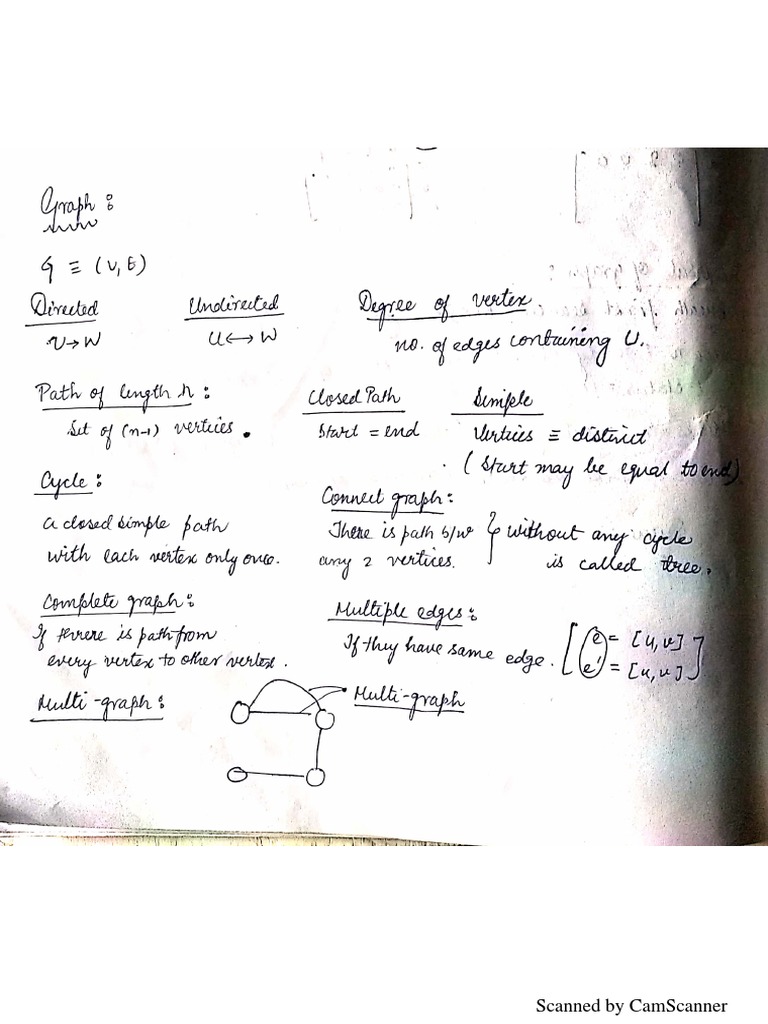 Graph:
G ≡ (V, E)
Directed Undirected Degree of vertex
U → W U ↔ W no. of edges containing U.
Path of length n: Closed Path Simple
Set of (n-1) vertices. Start = end Vertices ≡ distinct
(Start may be equal to end)
Cycle: Connect graph:
a closed simple path There is path b/w without any cycle
with each vertex only once. any 2 vertices. is called tree.
Complete graph: Multiple edges:
If there is path from If they have same edge. [ e = [u, v]
every vertex to other vertex. e' = [u, v] ]
Multi-graph: Multi-graph
Scanned by CamScanner